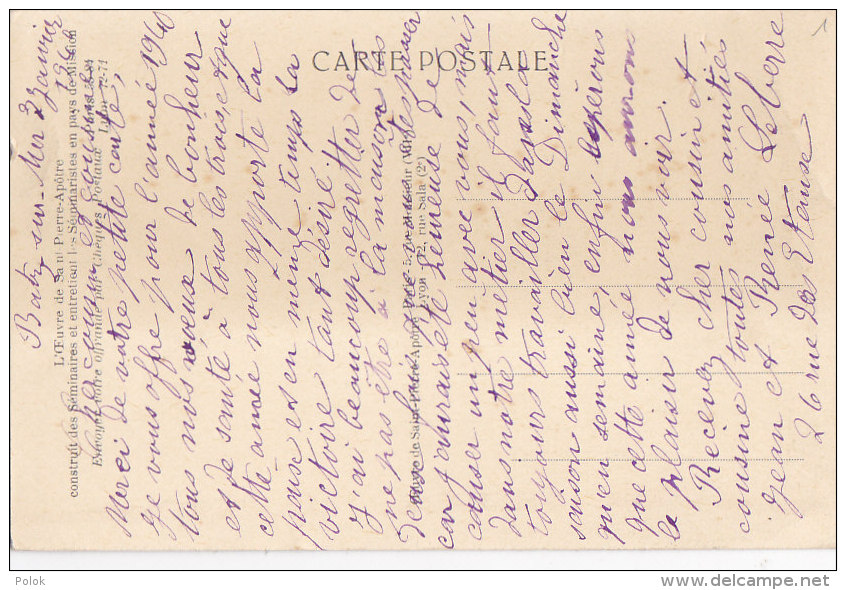 CARTE POSTALE
L'Œuvre de Saint Pierre-Apôtre
construit des Séminaires et entretient les Séminaristes en pays de Mission
Envoyez votre offrande par Chèques Postaux
Lyon 72-71
Œuvre de Saint-Pierre-Apôtre
Paris - 5, rue Monsieur (VII)
Lyon - 12, rue Sala (2e)
Batz-sur-Mer 3 Janvier
Cher cousin et cousine
Merci de votre petite carte,
je vous offre pour l'année 1940
tous nos vœux de bonheur
et de santé à tous les trois, et que
cette année nous apporte la
paix et en menze temps la
victoire tant désiré
J'ai beaucoup regretter de
ne pas être à la maison les
passer
car j'aurais été heureuse de
causer un peu avec vous, mais
dans notre métier il faut
toujours travailler
saison aussi bien le Dimanche
qu'en semaine, enfin espérons
que cette année nous aurons
le plaisir de nous voir.
Recevez cher cousin et
cousine toutes nos amitiés
Jean et Renée Leberre
26 rue des Etaux
1
Polok
delcampe.net